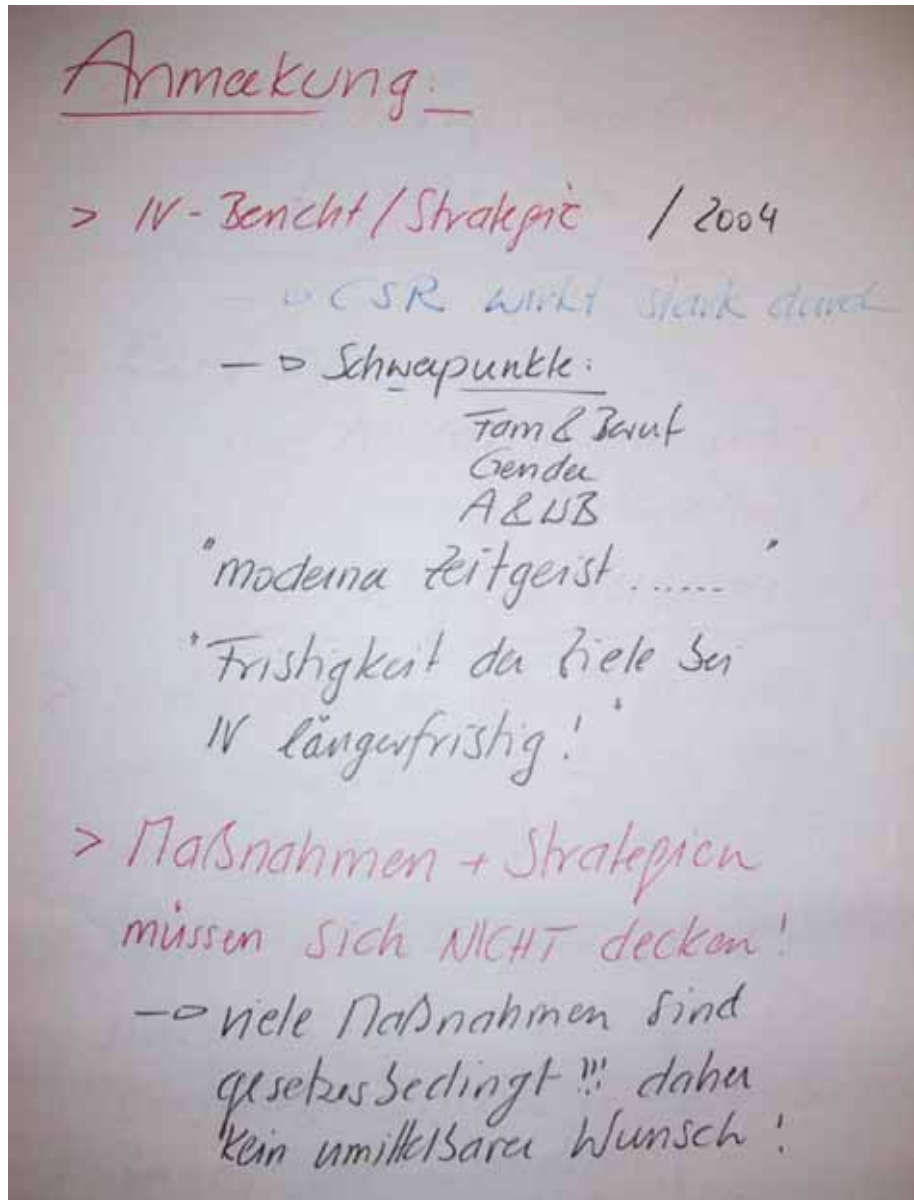 Anmerkung:
> IV-Bericht/Strategie / 2004
→ CSR wirkt stark durch
→ Schwerpunkte:
Fam & Beruf
Gender
A & WB
"moderner Zeitgeist ......"
"Fristigkeit der Ziele bei
IV längerfristig!"
> Maßnahmen + Strategien
müssen sich NICHT decken!
→ viele Maßnahmen sind
gesetzesbedingt !!! daher
kein unmittelbarer Wunsch!